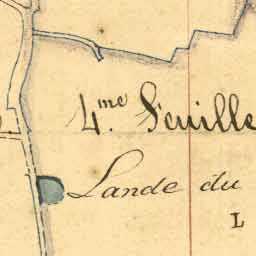 4.me Feuille
Lande du
L